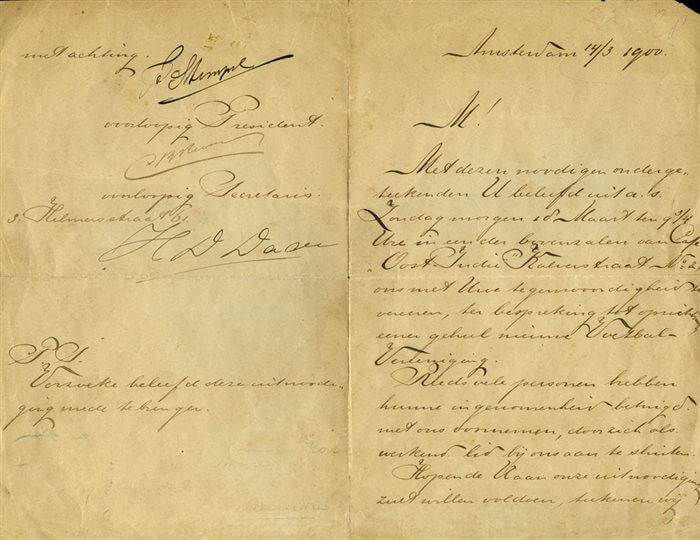 Amsterdam 14/3 1900.
M!
Met dezen noodigen onderge-
teekenden U beleefd uit a.s.
Zondag morgen 18 Maart ten 9 3/4
Ure in een der bovenzalen van Café
"Oost-Indië" Kalverstraat No 2
ons met Uwe tegenwoordigheid te
vereeren, ter bespreking tot oprichting
eener geheel nieuwe Voetbal-
Vereeniging.
Reeds vele personen hebben
hunne ingenomenheid betuigd
met ons voornemen, door zich als
werkend lid bij ons aan te sluiten.
Hopende U aan onze uitnoodiging
zult willen voldoen, teekenen wij
met achting.
F. Stempel
voorloopig President.
voorloopig Secretaris.
3e Helmersstraat 61.
H D Dade
P.S.
Verzoeke beleefd deze uitnoodi-
ging mede te brengen.